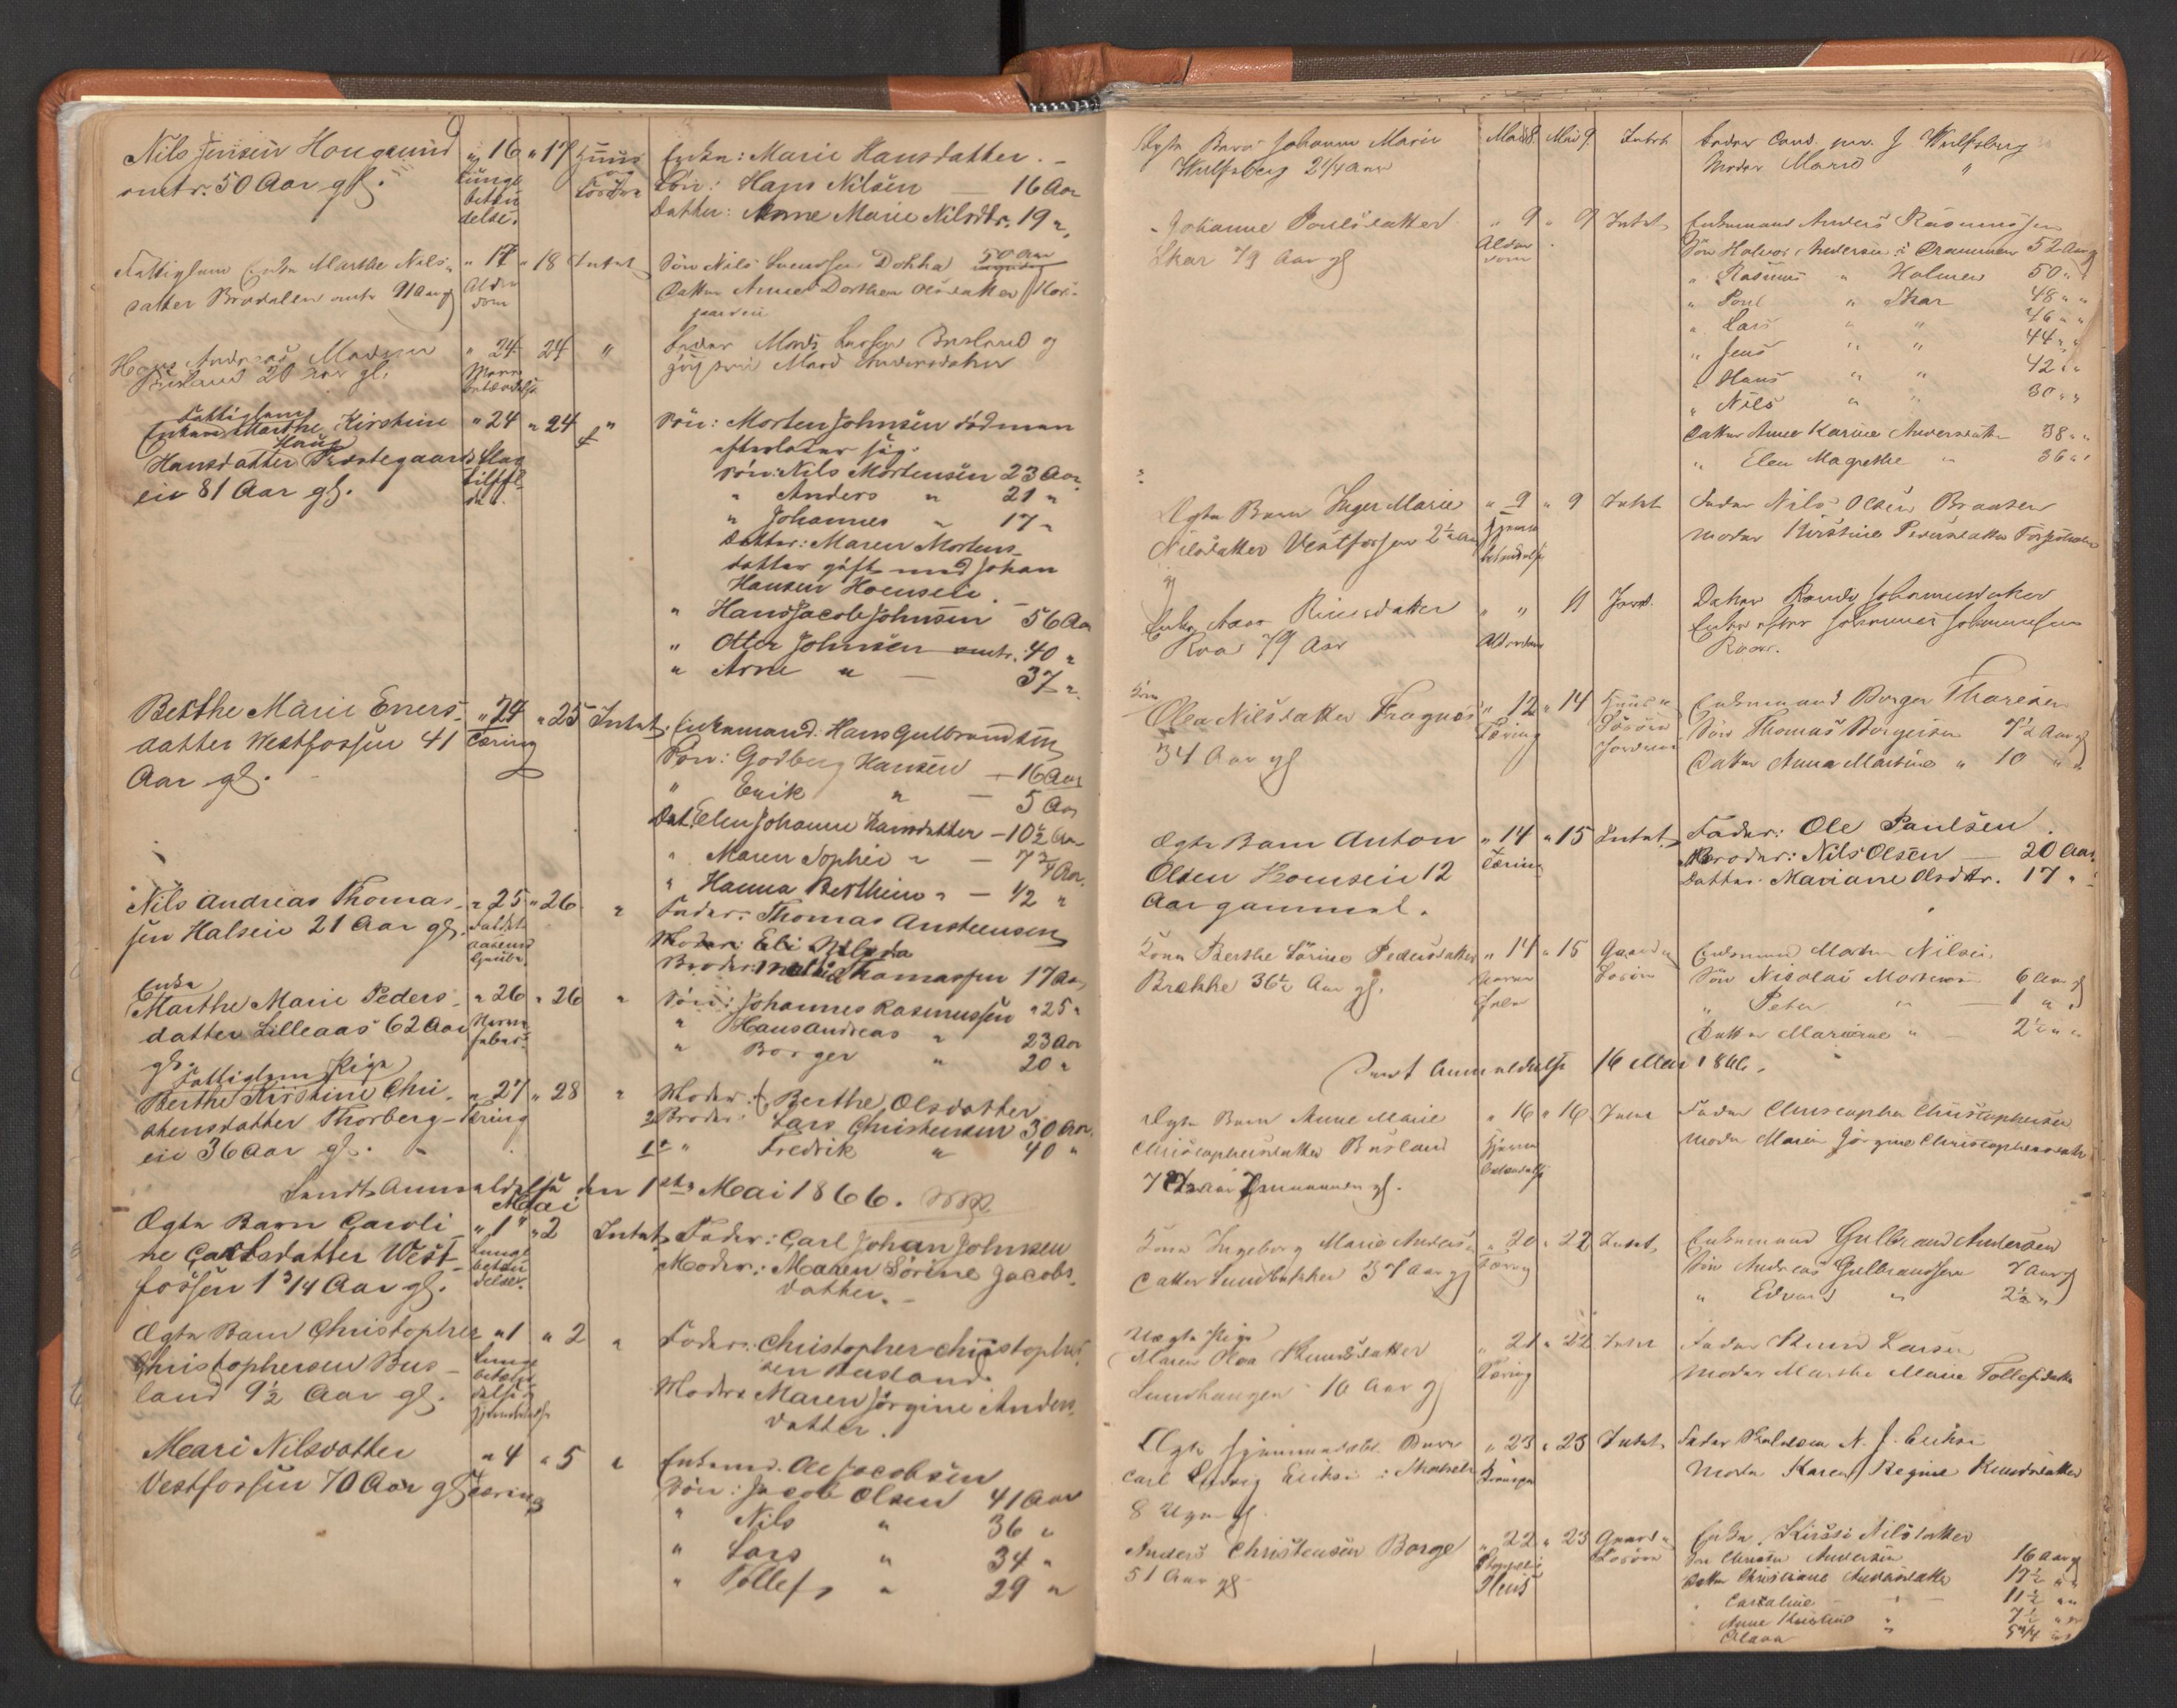 Nils Jensen Hougsund " 16 " 17 Huus Enke: Marie Hansdatter. -
omtr. 50 Aar gl. Lunge og Løsøre Søn: Hans Nilsen — 16 Aar
beten delse. Datter: Anne Marie Nilsdtr. 19 "
Fattiglem Enke Marthe Nils- " 17 " 18 Intet Søn Nils Svendsen Dokka 50 Aar
datter Brødalen omtr 91 Aar gl Alder dom Datter Anne Dorthea Olsdatter
Hans Andreas Madsen " 24 24 " Fader Mads Larsen Busland og
Busland 20 Aar gl. Mave betændelse Andersdatter
Fattiglem
Enken Marthe Kirstine " 24 " 24 " Søn: Morten Johnsen død men
Haug efterlader sig.
Hansdatter Præstegaards Slag Søn: Nils Mortensen 23 Aar
eie 81 Aar gl. tilfæl de. " Anders " 21 "
" Johannes " 17 "
Datter: Maren Mortens-
datter gift med Johan
Hansen Hoenseie. -
" Hans Jacob Johnsen 56 Aar
" Otter Johnsen omtr. 40 "
" Arne " — 37 "
Berthe Marie Eners- " 24 " 25 Intet. Enkemand: Hans Gulbrandsen
datter Westfossen 41 Tæring Søn: Godberg Hansen — 16 Aar
Aar gl. " Erik " — 5 Aar
Dat. Elen Johanne Hansdatter — 10½ Aar
" Maren Sophie " — 7¾ Aar.
" Hanna Berthine " — ½ "
Nils Andreas Thomas- " 25 " 26 " Fader: Thomas Anstensen
sen Halseie 21 Aar gl. Moder: Eli Nilsda
Broder: Thomassen 17 Aar
Enke
Marthe Marie Peders- " 26 " 26 " Søn: Johannes Rasmussen " 25 "
datter Lilleaas 62 Aar Nerve feber. " Hans Andreas " 23 Aar
gl. " Borger " 20 "
Fattiglem Pige
Berthe Kirstine Chri- " 27 " 28 " Moder: Berthe Olsdatter
stensdatter Thorberg- Tæring 2 Broder Lars Christensen 30 Aar.
eie 36 Aar gl. 1 " Fredrik " 40 "
Sendt Anmeldelse den 1ste Mai 1866.
Mai
Ægte Barn Caroli- " 1 " " 2 Intet Fader: Carl Johan Johnsen
ne Carlsdatter West- Lunge beten delse. Moder: Maren Sørine Jacobs-
fossen 1 3/4 Aar gl. datter. -
Ægte Barn Christopher " 1 " 2 " Fader: Christopher Christopher
Christophersen Bus- Lunge sen Busland
land 9½ Aar gl. Moder Maren Jørgine Anders-
datter.
Mari Nilsdatter " 4 " 5 " Enkemd. Ole Jacobsen
Vestfossen 70 Aar gl Tæring Søn: Jacob Olsen 41 Aar
" Nils " 36 "
" Lars " 34 "
" Tollef " 29 "
Ægte Barn Johanne Marie Mai 8. Mai 9. Intet Fader Cand. J Wulfsberg
Wulfsberg 2 1/4 Aar Moder Marie "
Johanne Poulsdatter " 9 " 9 Intet Enkemand Anders Rasmussen
Skar 79 Aar gl Alder dom Søn Halvor Andersen i Drammen 52 Aar gl
" Rasmus " Holmen 50 "
" Poul " Skar 48 " "
" Lars " " 46 " "
" Jens " " 44 " "
" Hans " " 42 " "
" Nils " " 30 " "
Datter Anne Karine Andersdatter 38 " "
" Elen Magrethe " 36 " "
Ægte Barn Inger Marie " 9 " 9 Intet Fader Nils Olsen Braaten
Nilsdatter Vestfossen 2½ Aar Hjerne betendelse Moder Kirstine Pedersdatter
Enke " " 9 Jord. Datter Randi Johannesdatter
Roa 79 Aar Alderdom Enke efter Johannes Johannessen
Kone
Olea Nilsdatter Fragnæs " 12 " 14 Huus Enkemand Borger Thoresen
34 Aar gl Tæring Løsøre Søn Thomas Borgersen 7½ Aar gl
Jordvei Datter Anna Martine " 10 " "
Ægte Barn Anton " 14 " 15 Intet. Fader: Ole Paulsen.
Olsen Hoenseie 12 Tæring Broder: Nils Olsen — 20 Aar
Aar gammel. Datter. Mariane Olsdtr. 17 "
Kone Berthe Sørine Pedersdatter " 14 " 15 Gaard Enkemand Morten Nilsen
Brække 36½ Aar gl. Løsøre Søn Nicolai Mortensen 6 Aar gl
" Peter " — 1 " "
Datter Mariane " — 2½ " "
Sendt Anmeldelse 16 Mai 1866.
Ægte Barn Anne Marie " 16 " 16 Intet Fader Christopher Christophersen
Christophersdatter Busland Hjerne betændelse Moder Maren Jørgine Christophersdatr
7 Aar gl.
Kone Ingeborg Marie Anders- " 20 " 22 Intet Enkemand Gulbrand Andersen
datter 37 Aar gl Tæring Søn Andreas Gulbrandsen 7 Aar gl
" Edvard " 2½ "
Uægte Pige
Maren Olea Knudsdatter " 21 " 22 Intet Fader Knud Larsen
Lundhaugen 16 Aar gl Tæring Moder Marthe Marie Tollefsdatter
Ægte Barn " 23 " 23 Intet Fader N. J. Eriksen
Carl Ludvig Eriksen Moder Karen Regine Knudsdatter
8 Uger gl.
Anders Christensen Borge " 22 " 23 Gaard Enke Kirsti Nilsdatter
51 Aar gl Løsøre Søn Christen Andersen 16 Aar gl
Datter Christiane Andersdatter 17½ " "
" Caroline " 11½ " "
" Anne Kirstine " 7½ " "
Olava " 5 3/4 " "